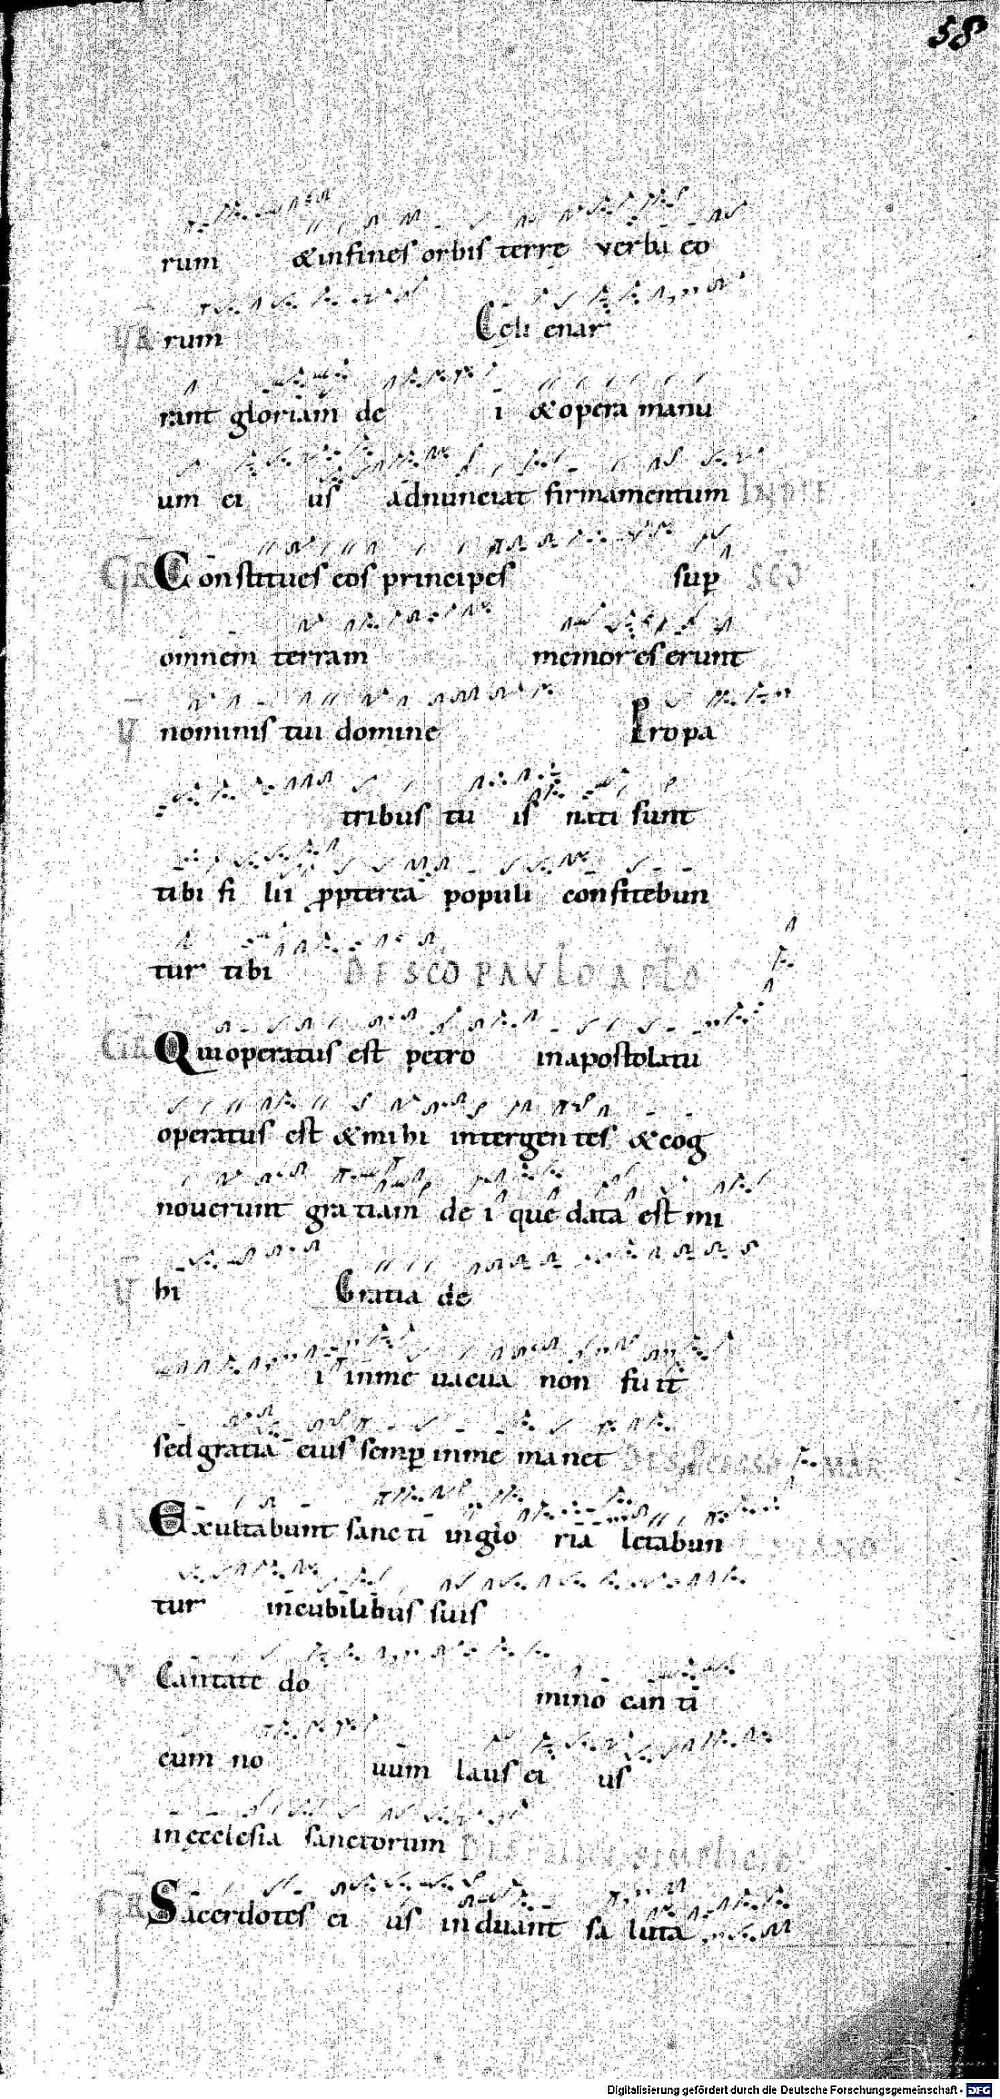 58
rum &infines orbis terre verbū eo
rum Celi enar
rant gloriam de i &opera manu
um ei us adnunciat firmamentum
GR Constitues eos principes sup
SCO
omnem terram memores erunt
V nominis tui domine Propa
tribus tu is nati sunt
tibi fi lii ppterea populi confitebun
tur tibi DE SCO PAVLO APLO
GR Qui operatus est petro in apostolatu
operatus est &mihi inter gentes &cog
noverunt gratiam de i que data est mi
V hi Gratia de
i in me vacua non fuit
sed gratia eius semp in me manet
Exultabunt sancti in glo ria letabun
tur in cubilibus suis
V Cantate do mino can ti
cum no uum laus ei us
in ecclesia sanctorum
GR Sacerdotes ei us induant sa luta
Digitalisierung gefördert durch die Deutsche Forschungsgemeinschaft - DFG